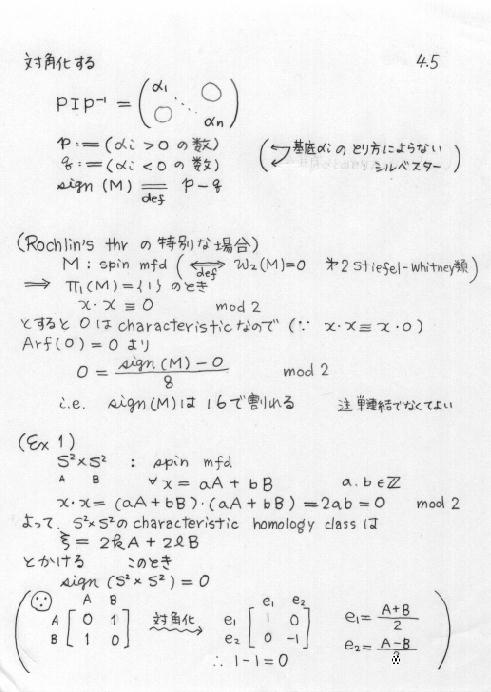 対角化する 4.5
PIP⁻¹ = ( α₁ ⋱ αn ○ ○ )
p := (αi > 0 の数)
q := (αi < 0 の数) ( 基底αi のとり方によらない シルベスター )
sign (M) =def p - q
(Rochlin's thr の特別な場合)
M : spin mfd ( ⟺def w₂(M)=0 第2 Stiefel-Whitney類 )
⟹ π₁(M) = {1} のとき
x・x ≡ 0 mod 2
とすると 0 は characteristic なので (∵ x・x ≡ x・0)
Arf(0) = 0 より
0 = (sign.(M) - 0)/8 mod 2
i.e. sign(M)は 16で割れる 注 単連結でなくてよい
(Ex 1)
S²×S² : spin mfd
A B ∀x = aA + bB a.b∈ℤ
x・x = (aA + bB)・(aA + bB) = 2ab = 0 mod 2
よって. S²×S²の characteristic homology class は
ξ = 2kA + 2ℓB
とかける このとき
sign (S²×S²) = 0
A B e₁ e₂
A [ 0 1 対角化 e₁ [ 1 0 e₁ = (A+B)/2
B 1 0 ] e₂ 0 -1 ] e₂ = (A-B)/
∴ 1-1=0